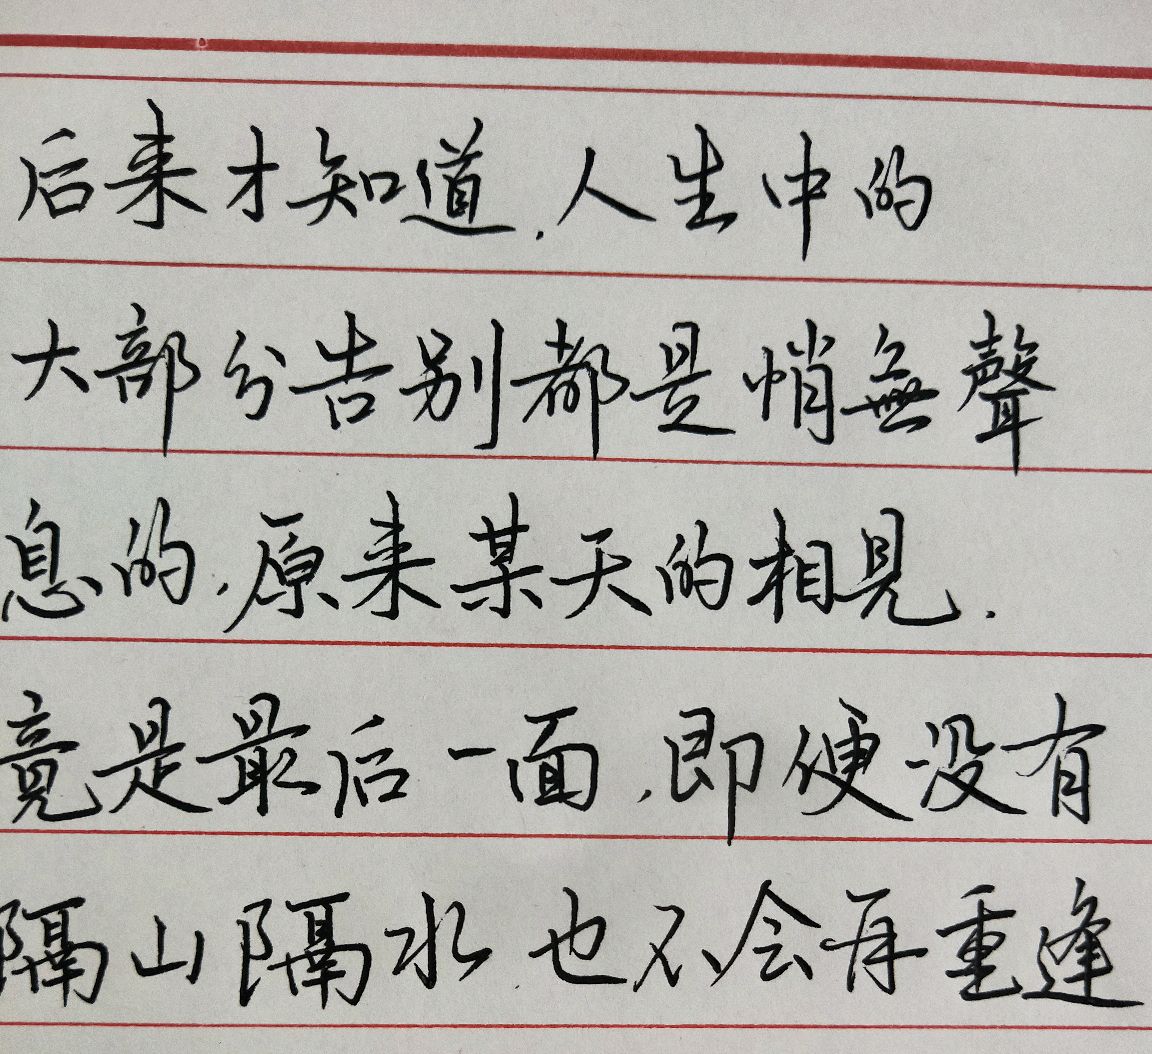 后来才知道,人生中的
大部分告别都是悄無聲
息的,原来某天的相見,
竟是最后一面,即便没有
隔山隔水也不会再重逢